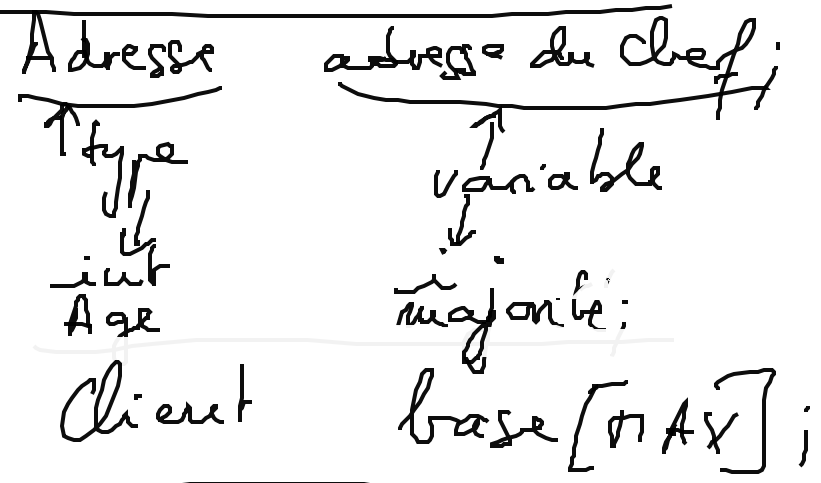 Adresse adresse du Chef;
type
variable
int i;
Age majorite;
Client base[MAX];